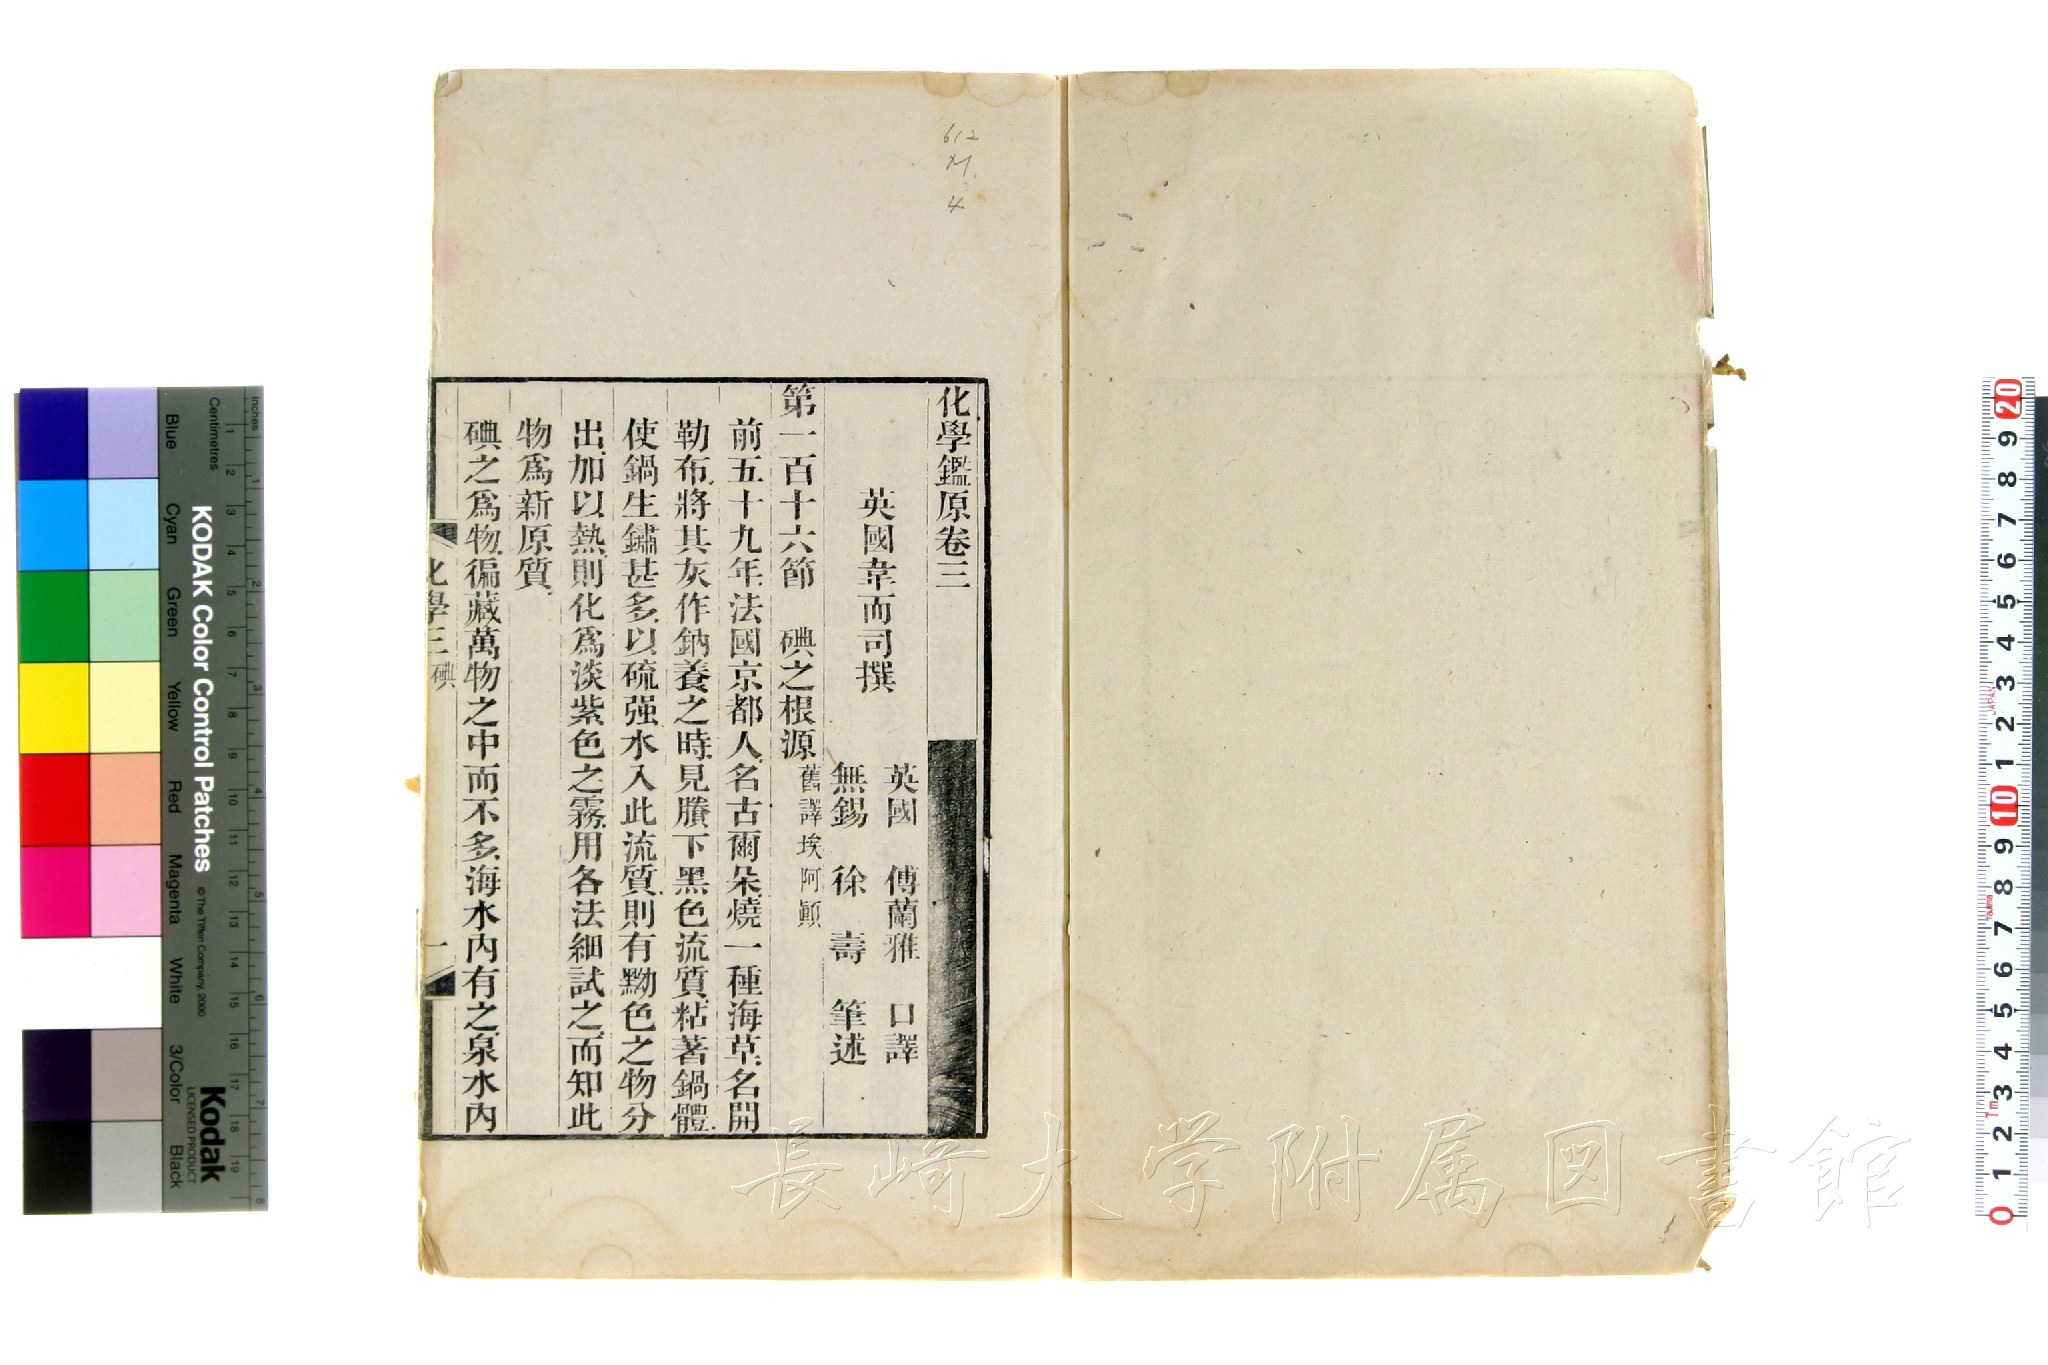 612
M
4
化學鑑原卷三
英國韋而司撰
英國 傅蘭雅 口譯
無錫 徐壽 筆述
第一百十六節 碘之根源 舊譯埃阿顚
前五十九年、法國京都人、名古爾朵、燒一種海草、名開
勒布、將其灰作鈉養之時、見賸下黑色流質、粘著鍋體、
使鍋生鏽甚多、以硫强水入此流質、則有黝色之物分
出、加以熱、則化爲淡紫色之霧、用各法細試之、而知此
物爲新原質、
碘之爲物、徧藏萬物之中而不多、海水內有之、泉水內
化學三 碘
一
長崎大学附属図書館
KODAK Color Control Patches
© The Tiffen Company, 2000
Kodak
LICENSED PRODUCT
Centimetres
inches
Blue
Cyan
Green
Yellow
Red
Magenta
White
3/Color
Black
1 2 3 4 5 6 7 8 9 10 11 12 13 14 15 16 17 18 19
1 2 3 4 5 6 7 8
20 9 8 7 6 5 4 3 2 1 10 9 8 7 6 5 4 3 2 1 0
JAPAN
Tajima
Tm